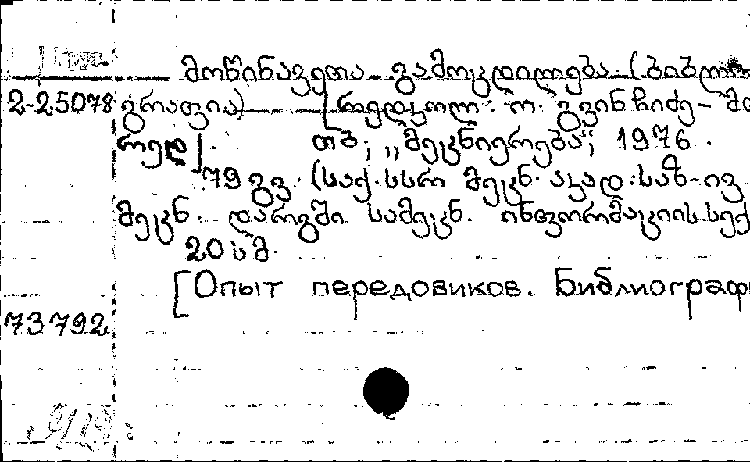 მოწინავეთა გამოცდილება (ბიბლიო
2-25078 გრაფია) [რედკოლ. ო. გვინჩიძე - მთ
რედ].
თბ., „მეცნიერება“, 1976.
79 გვ. (საქ. სსრ მეცნ. აკად. საზ-ივ
მეცნ. დარგში სამეცნ. ინფორმაციის სექ
20 სმ.
[Опыт передовиков. Библиограф
73792